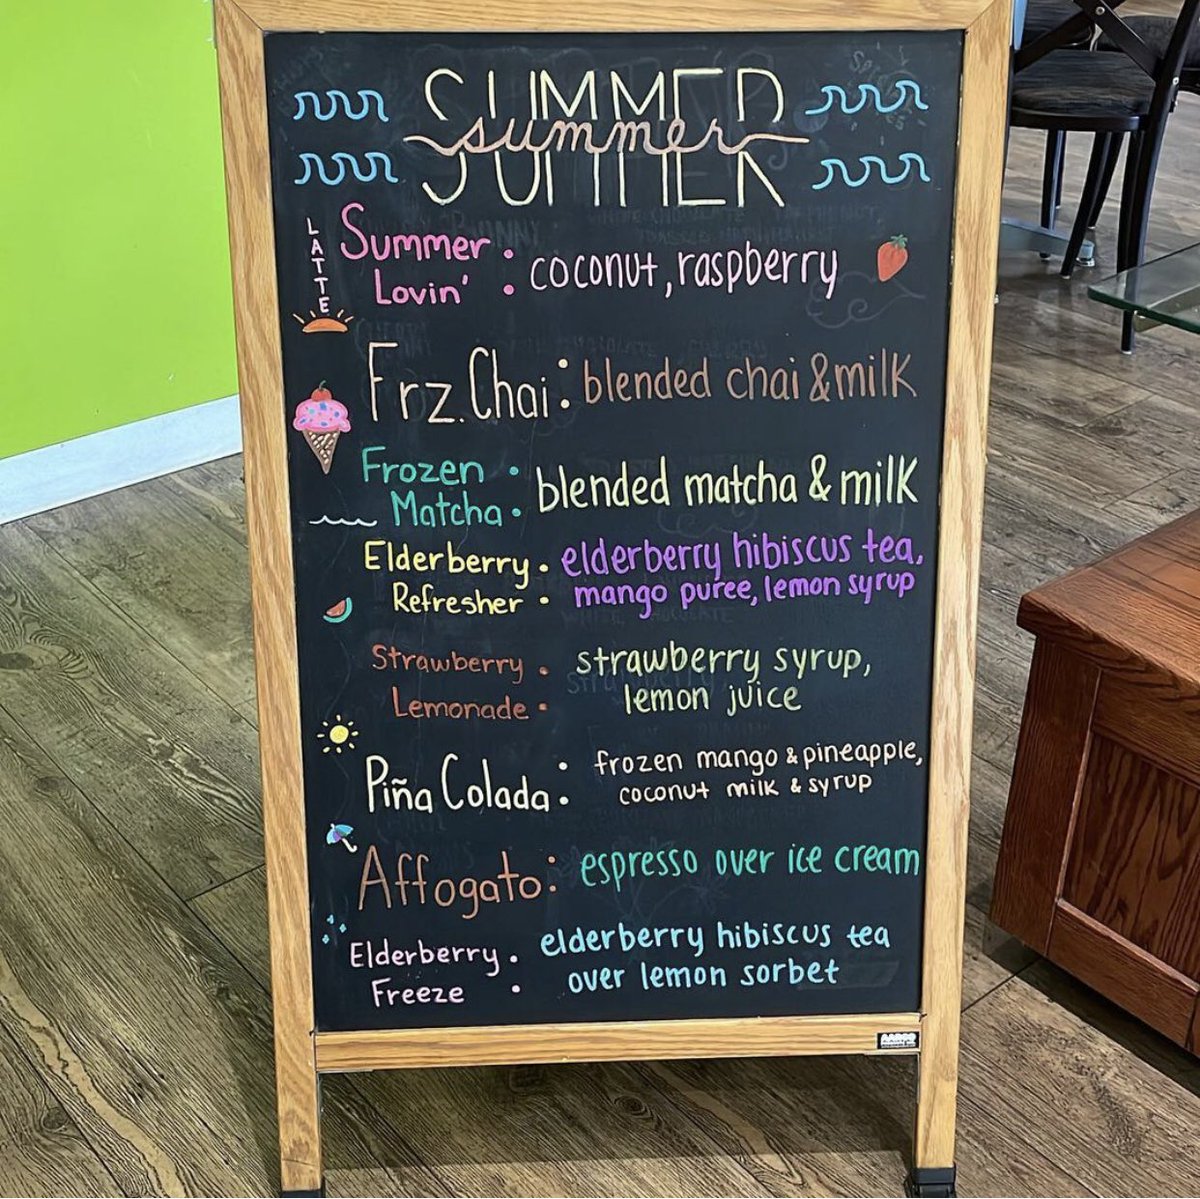 SUMMER
summer
SUMMER
LATTE
Summer : coconut, raspberry
Lovin'
Frz. Chai: blended chai & milk
Frozen : blended matcha & milk
Matcha
Elderberry : elderberry hibiscus tea,
Refresher mango puree, lemon syrup
Strawberry : strawberry syrup,
Lemonade lemon juice
Piña Colada: frozen mango & pineapple,
coconut milk & syrup
Affogato: espresso over ice cream
Elderberry : elderberry hibiscus tea
Freeze over lemon sorbet